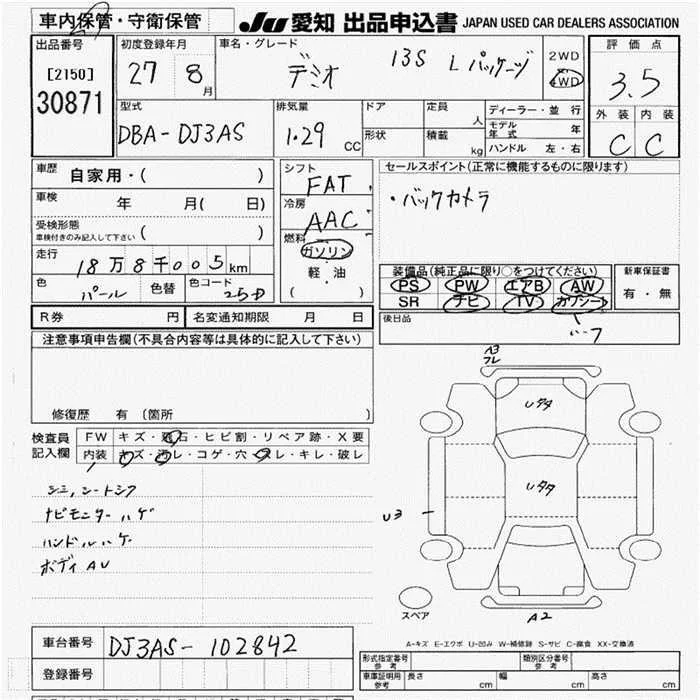 車内保管・守衛保管
JU 愛知 出品申込書 JAPAN USED CAR DEALERS ASSOCIATION
出品番号
[2150]
30871
初度登録年月
27 8 月
車名・グレード
デミオ 13S Lパッケージ
2WD
4WD
評価点
3.5
外装 内装
C C
型式
DBA-DJ3AS
排気量
1.29 CC
ドア
形状
定員 人
積載 kg
ディーラー・並行
モデル年式 年
ハンドル 左・右
車歴
自家用・( )
車検 年 月( 日)
受検形態
車検付きのみ記入して下さい ( )
走行
18万8千005km
色 パール 色替 色コード 25D
シフト
FAT
冷房
AAC
燃料
ガソリン
軽・油
( )
セールスポイント(正常に機能するものに限ります)
・バックカメラ
装備品(純正品に限り○をつけてください)
PS PW エアB AW
SR ナビ TV カワシート
新車保証書
有・無
後日品
R券 円 名変通知期限 月 日
注意事項申告欄(不具合内容等は具体的に記入して下さい)
修復歴 有 〔箇所
検査員記入欄
FW キズ・飛石・ヒビ割・リペア跡・X要
内装 キズ・汚レ・コゲ・穴・スレ・キレ・破レ
シミ,シートシワ
ナビモニターハゲ
ハンドルハゲ
ボディAU
A3
フレ
Uタタ
Uタタ
U3
スペア
A2
A-キズ E-エクボ U-凹み W-補修跡 S-サビ C-腐食 XX-交換済
車台番号 DJ3AS-102842
登録番号
形式指定番号 参考
類別区分番号 参考
車庫証明用 参考 長さ cm 幅 cm 高さ cm